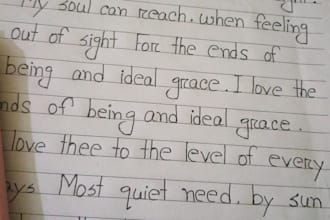 My soul can reach. when feeling
out of sight For the ends of
being and ideal grace. I love the
nds of being and ideal grace.
love thee to the level of every
ays. Most quiet need, by sun